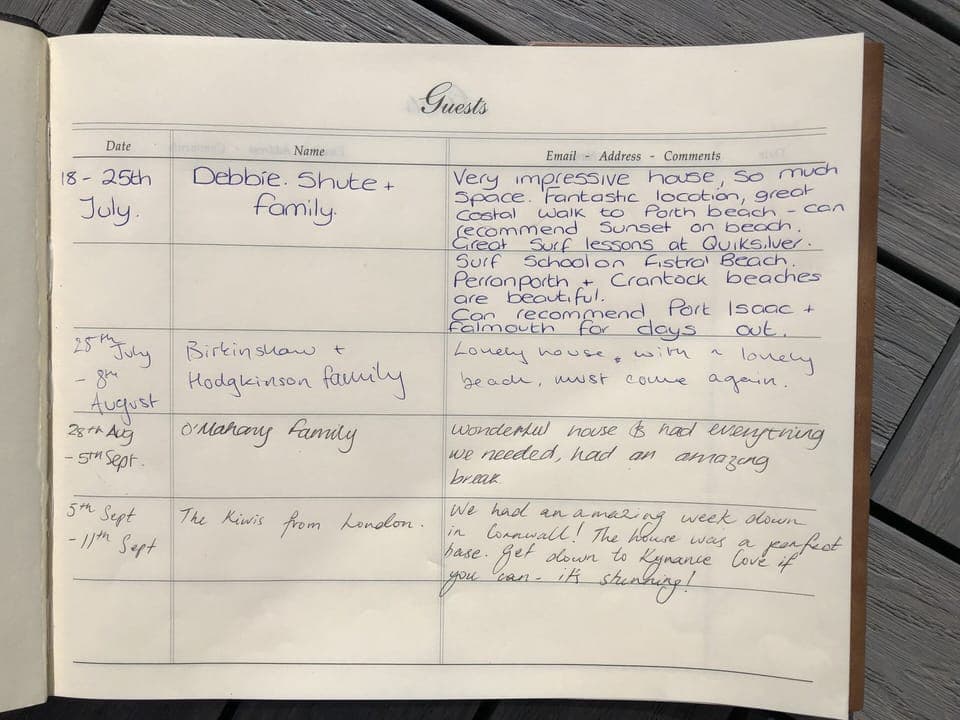 Guests
Date Name Email - Address - Comments
18 - 25th July.
Debbie. Shute + family.
Very impressive house, so much
space. Fantastic location, great
costal walk to Porth beach - can
recommend sunset on beach.
Great surf lessons at Quiksilver.
Surf School on Fistral Beach.
Perranporth + Crantock beaches
are beautiful.
Can recommend Port Isaac +
Falmouth for days out.
25th July
- 8th
August
Birkinshaw +
Hodgkinson family
Lovely house, with a lovely
beach, must come again.
28th Aug
- 5th Sept.
O'Mahony Family
Wonderful house & had everything
we needed, had an amazing
break
5th Sept
- 11th Sept
The Kiwis from London.
We had an amazing week down
in Cornwall! The house was a perfect
base. Get down to Kynance Cove if
you can - it's stunning!